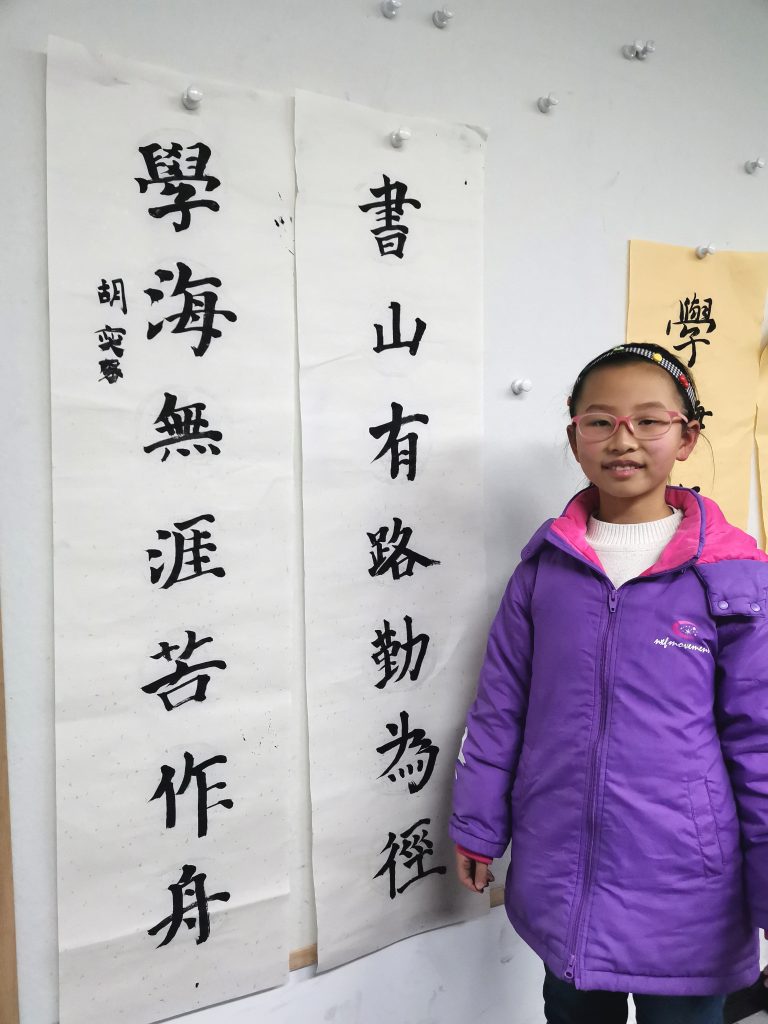 書山有路勤為徑
學海無涯苦作舟
胡奕
學